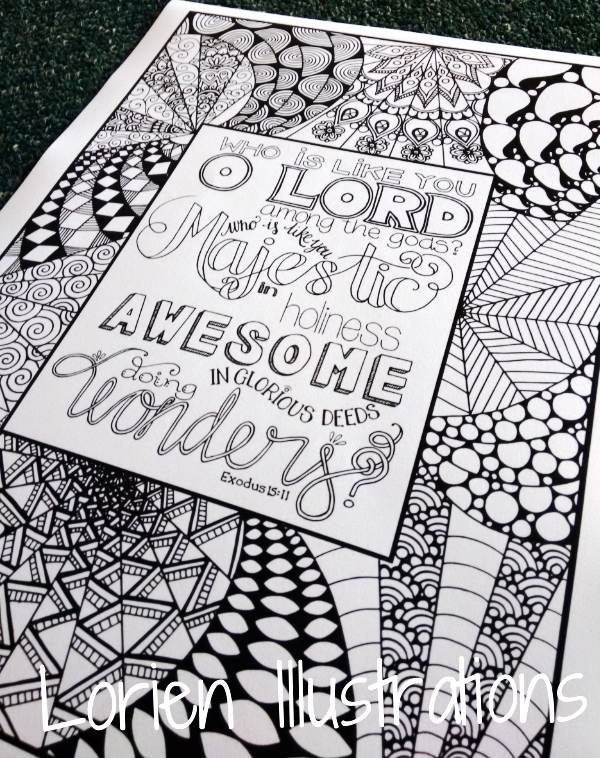 WHO IS LIKE YOU
O LORD
among the gods?
Who is like you
Majestic
in holiness
AWESOME
IN GLORIOUS DEEDS
doing
wonders?
Exodus 15:11
Lorien Illustrations